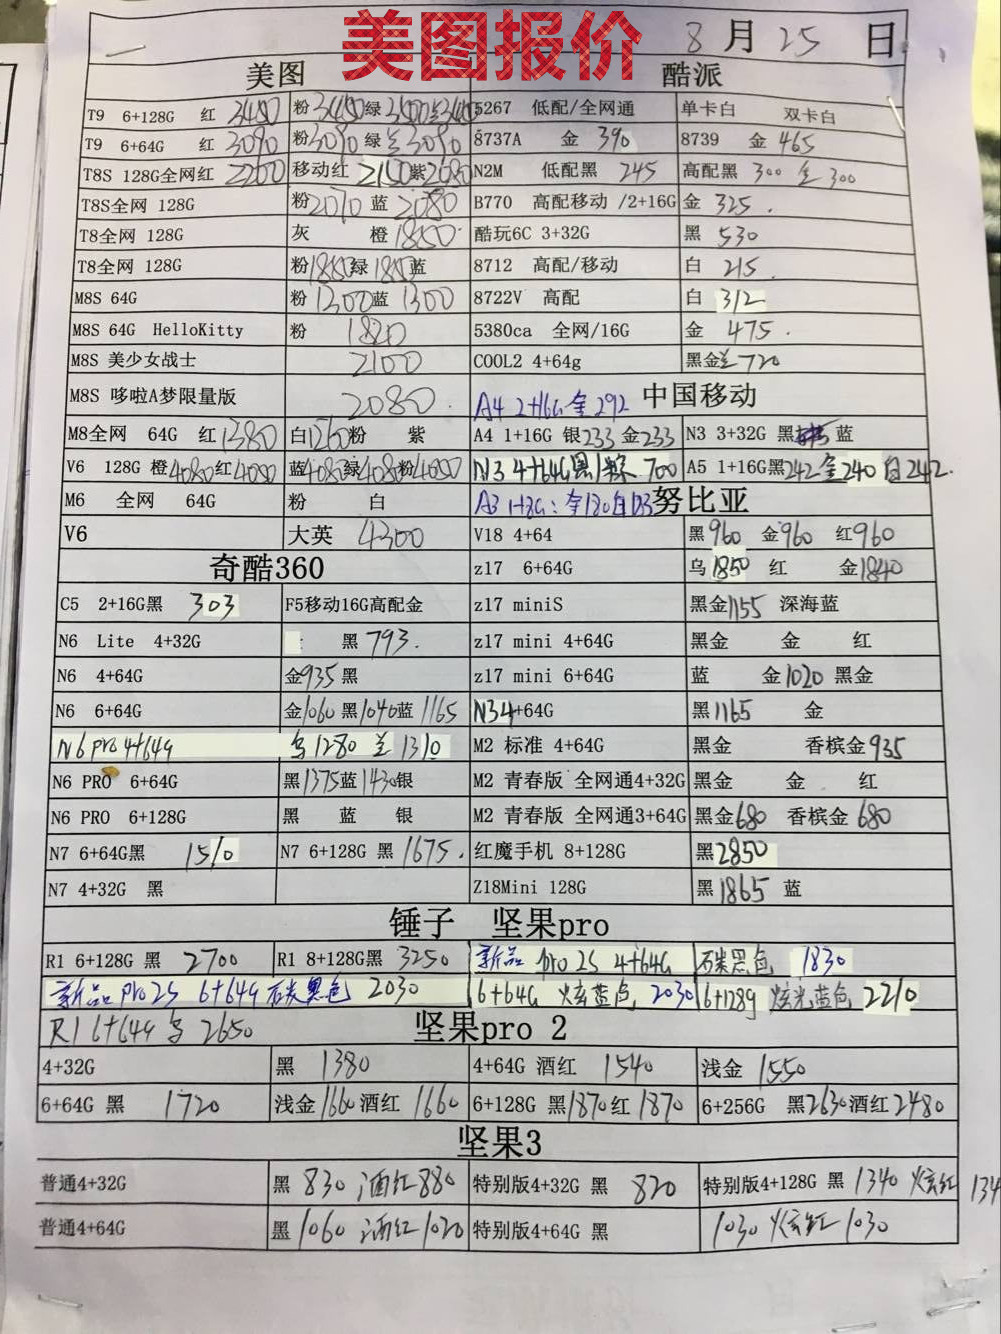 美图报价 8月25日
美图 酷派
T9 6+128G 红 3480 粉3480绿 5267 低配/全网通 单卡白 双卡白
T9 6+64G 红 3090 粉3090 绿 3090 8737A 金 390 8739 金 465
T8S 128G全网红 2200 移动红 2100紫2080 N2M 低配黑 245 高配黑 300 金 300
T8S全网 128G 粉2070 蓝 2080 B770 高配移动 /2+16G 金 325.
T8全网 128G 灰 橙1850 酷玩6C 3+32G 黑 530
T8全网 128G 粉1850绿1850蓝 8712 高配/移动 白 215.
M8S 64G 粉 1300蓝 1300 8722V 高配 白 312
M8S 64G HelloKitty 粉 1820 5380ca 全网/16G 金 475.
M8S 美少女战士 2100 COOL2 4+64g 黑金 720
M8S 哆啦A梦限量版 2080. A4 2+16G 金 292 中国移动
M8全网 64G 红1380 白1260粉 紫 A4 1+16G 银233 金233 N3 3+32G 黑 蓝
V6 128G 橙4080红4080 蓝4080绿4080粉4080 N3 4+64G黑 700 A5 1+16G黑242金240 白242.
M6 全网 64G 粉 白 A3 1+8G: 金180白 努比亚
V6 大英 4300 V18 4+64 黑960 金960 红960
奇酷360 z17 6+64G 乌1850 红 金1840
C5 2+16G黑 303 F5移动16G高配金 z17 miniS 黑金1155 深海蓝
N6 Lite 4+32G 黑 793. z17 mini 4+64G 黑金 金 红
N6 4+64G 金935黑 z17 mini 6+64G 蓝 金1020 黑金
N6 6+64G 金1060 黑1040蓝 1165 N3 4+64G 黑1165 金
N6 pro 4+64g 乌1280 兰1310 M2 标准 4+64G 黑金 香槟金935
N6 PRO 6+64G 黑1375蓝1430银 M2 青春版 全网通4+32G 黑金 金 红
N6 PRO 6+128G 黑 蓝 银 M2 青春版 全网通3+64G 黑金680 香槟金 680
N7 6+64G黑 1510 N7 6+128G 黑 1675. 红魔手机 8+128G 黑2850
N7 4+32G 黑 Z18Mini 128G 黑1865 蓝
锤子 坚果pro
R1 6+128G 黑 2700 R1 8+128G黑 3250 新品 pro 2S 4+64G 石炭黑色 1830
新品 pro 2S 6+64g 石炭黑色 2030 6+64G 炫蓝色 2030 6+128g 炫光蓝色 2210
R1 6+64g 乌 2650 坚果pro 2
4+32G 黑 1380 4+64G 酒红 1540 浅金 1550
6+64G 黑 1720 浅金1660酒红 1660 6+128G 黑1870红 1870 6+256G 黑2630酒红2480
坚果3
普通4+32G 黑 830 酒红880 特别版4+32G 黑 820 特别版4+128G 黑 1340 炫红 134
普通4+64G 黑 1060 酒红1020 特别版4+64G 黑 1030 炫红 1030